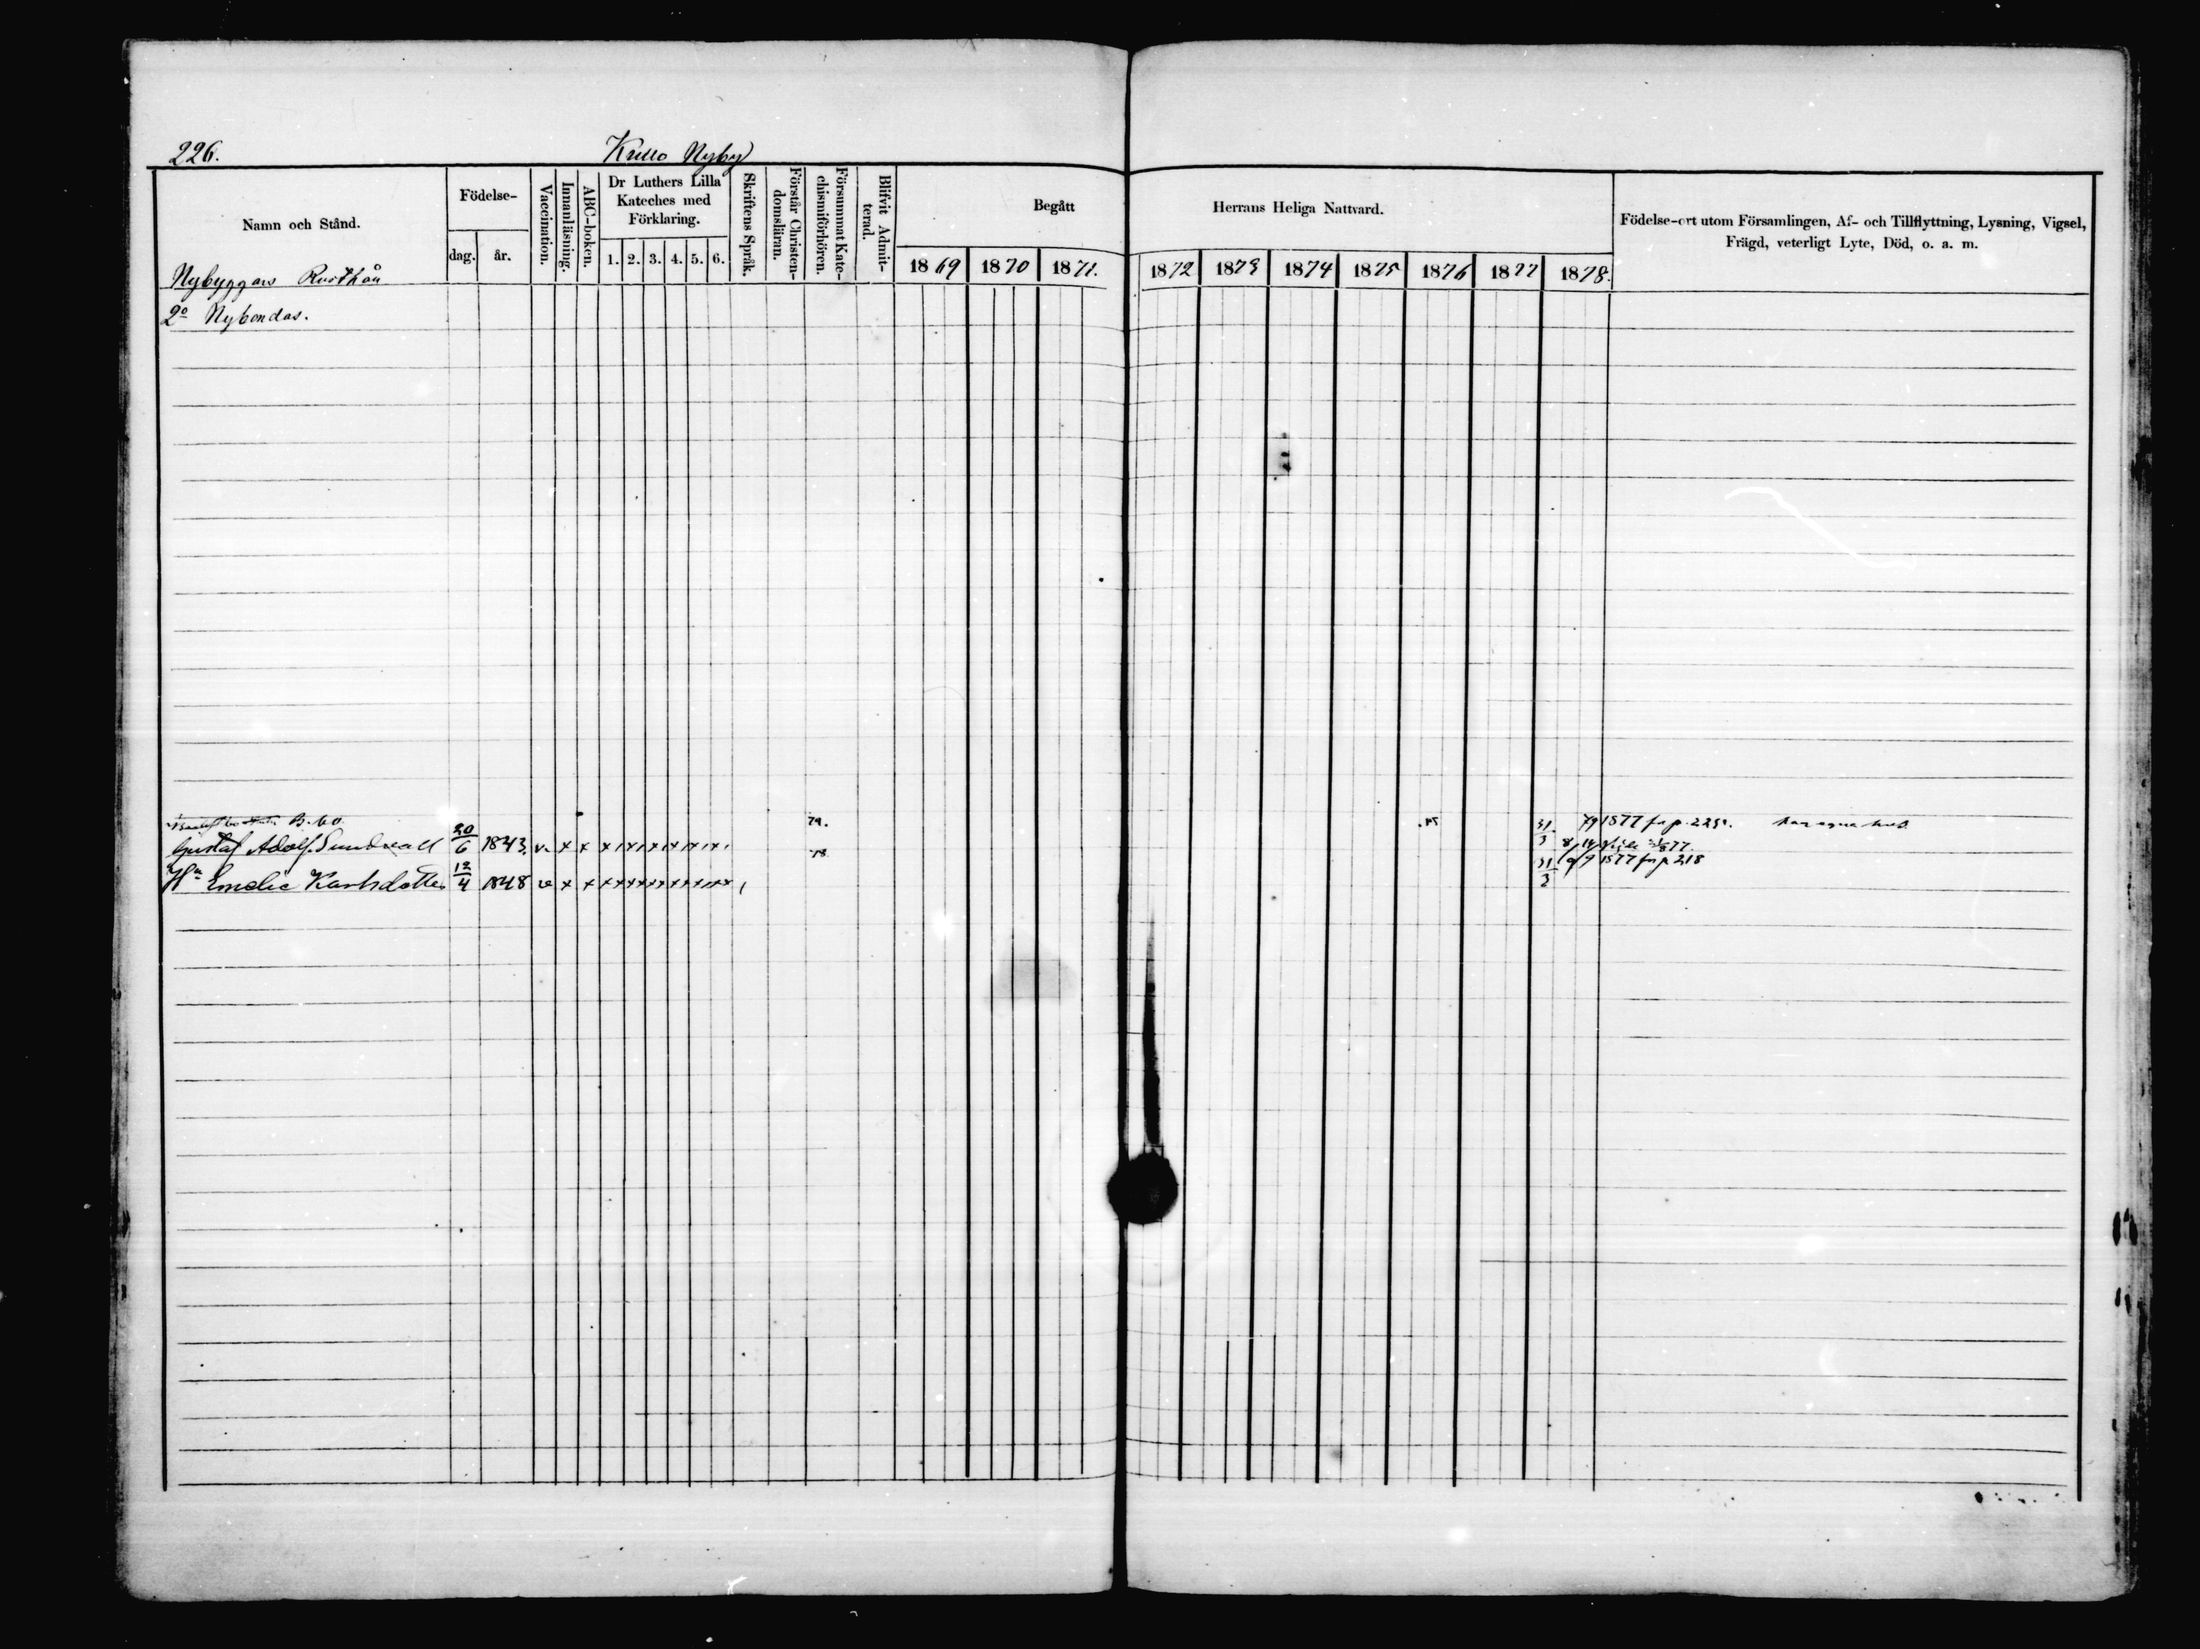 226. Krello Nyby
Namn och Stånd.
Födelse-
dag. år.
Vaccination.
Innanläsning.
ABC-boken.
Dr Luthers Lilla
Kateches med
Förklaring.
1. 2. 3. 4. 5. 6.
Skriftens Språk.
Förstår Christen-
domsläran.
Försummat Kate-
chismiförhören.
Blifvit Admit-
terad.
Begått Herrans Heliga Nattvard.
1869 1870 1871. 1872 1873 1874 1875 1876 1877 1878.
Födelse-ort utom Församlingen, Af- och Tillflyttning, Lysning, Vigsel,
Frägd, veterligt Lyte, Död, o. a. m.
Nybyggars Rusthåll
2o Nybondas.
B. bo 79. 31/3 7/9 1877 fr p. 225.
Gustaf Adolf Sundvall 20/6 1843. v. x x x x x x x x
Hu Emelie Karlsdotter 12/4 1848 v x x x x x x x x 31/3 9/9 1877 fr p 218